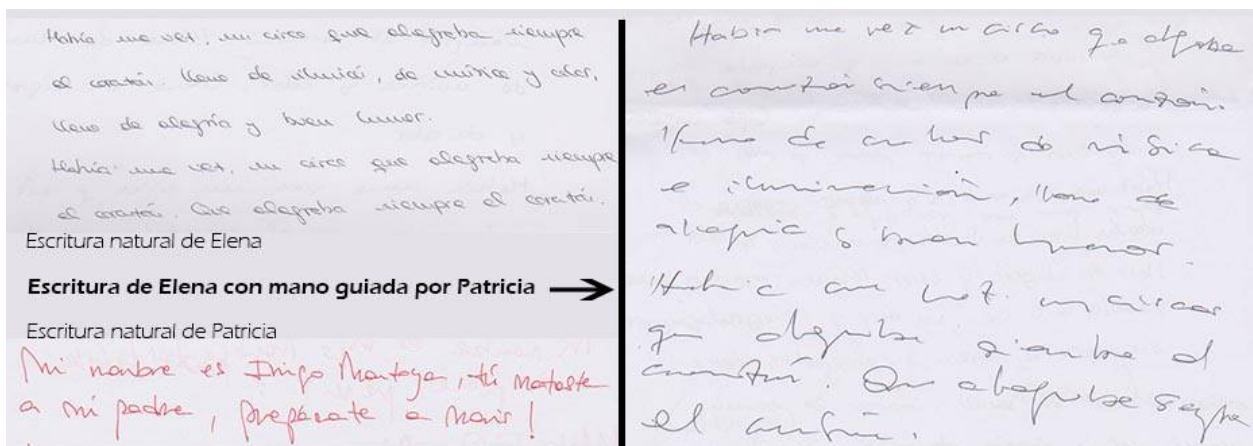 Había una vez, un circo que alegraba siempre
el corazón. lleno de ilusión, de música y color,
lleno de alegría y buen humor.
Había una vez, un circo que alegraba siempre
el corazón. Que alegraba siempre el corazón.
Escritura natural de Elena
Escritura de Elena con mano guiada por Patricia
Escritura natural de Patricia
Mi nombre es Iñigo Montoya, tú mataste
a mi padre, prepárate a morir!
Había una vez un circo que alegraba
el corazón siempre el corazón.
lleno de de música
e iluminación, lleno de
alegría y buen humor.
Había una vez un circo
que alegraba siempre el
corazón. Que alegraba siempre
el